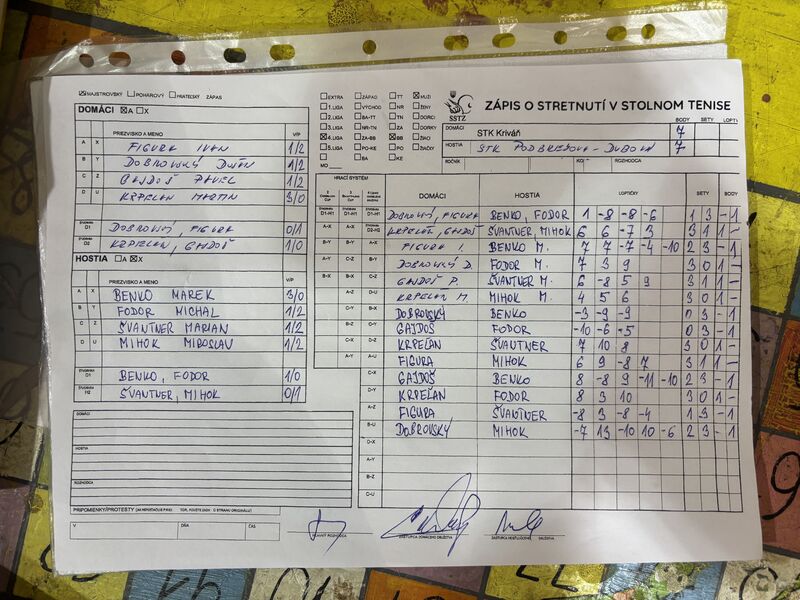 MAJSTROVSKÝ POHÁROVÝ PRIATEĽSKÝ ZÁPAS
DOMÁCI A X
PRIEZVISKO A MENO V/P
A X FIGURA IVAN 1/2
B Y DOBROVSKÝ DUŠAN 1/2
C Z GAJDOŠ PAVEL 1/2
D U KRPEĽAN MARTIN 3/0
D1 DOBROVSKÝ, FIGURA 0/1
D2 KRPEĽAN, GAJDOŠ 1/0
HOSTIA A X
PRIEZVISKO A MENO V/P
A X BENKO MAREK 3/0
B Y FODOR MICHAL 1/2
C Z ŠVANTNER MARIAN 1/2
D U MIHOK MIROSLAV 1/2
D1 BENKO, FODOR 1/0
H2 ŠVANTNER, MIHOK 0/1
DOMÁCI
HOSTIA
ROZHODCA
PRIPOMIENKY/PROTESTY
V DŇA ČAS
EXTRA ZÁPAD TT MUŽI
1. LIGA VÝCHOD NR ŽENY
2. LIGA BA-TT TN DORCI
3. LIGA NR-TN ZA DORKY
4. LIGA ZA-BB BB ŽIACI
5. LIGA PO-KE PO ŽIAČKY
MO BA KE
SSTZ
ZÁPIS O STRETNUTÍ V STOLNOM TENISE
BODY SETY LOPT
DOMÁCI STK Kriváň 7
HOSTIA STK PODBREZOVÁ - DUBOVÁ 7
ROČNÍK KOLO ROZHODCA
HRACÍ SYSTÉM
DOMÁCI HOSTIA LOPTIČKY SETY BODY
D1-H1 D1-H1 DOBROVSKÝ, FIGURA BENKO, FODOR 1 -8 -8 -6 1 3 - 1
A-X A-X D2-H2 KRPEĽAN, GAJDOŠ ŠVANTNER, MIHOK 6 6 -7 3 3 1 1 -
B-Y B-Y A-X FIGURA I. BENKO M. 7 7 -7 -4 -10 2 3 - 1
A-Y C-Z B-Y DOBROVSKÝ D. FODOR M. 7 3 9 3 0 1 -
B-X B-X C-Z GAJDOŠ P. ŠVANTNER M. 6 -8 5 9 3 1 1 -
A-Z D-U KRPEĽAN M. MIHOK M. 4 5 6 3 0 1 -
C-Y B-X DOBROVSKÝ BENKO -3 -9 -9 0 3 - 1
B-Z C-Y GAJDOŠ FODOR -10 -6 -5 0 3 - 1
C-X D-Z KRPEĽAN ŠVANTNER 7 10 8 3 0 1 -
A-Y A-U FIGURA MIHOK 6 9 -8 7 3 1 1 -
C-X GAJDOŠ BENKO 8 -8 9 -11 -10 2 3 - 1
D-Y KRPEĽAN FODOR 8 3 10 3 0 1 -
A-Z FIGURA ŠVANTNER -8 3 -8 -4 1 3 - 1
B-U DOBROVSKÝ MIHOK -7 13 -10 10 -6 2 3 - 1
D-X
A-Y
B-Z
C-U
HLAVNÝ ROZHODCA ZÁSTUPCA DOMÁCEHO DRUŽSTVA ZÁSTUPCA HOSŤUJÚCEHO DRUŽSTVA